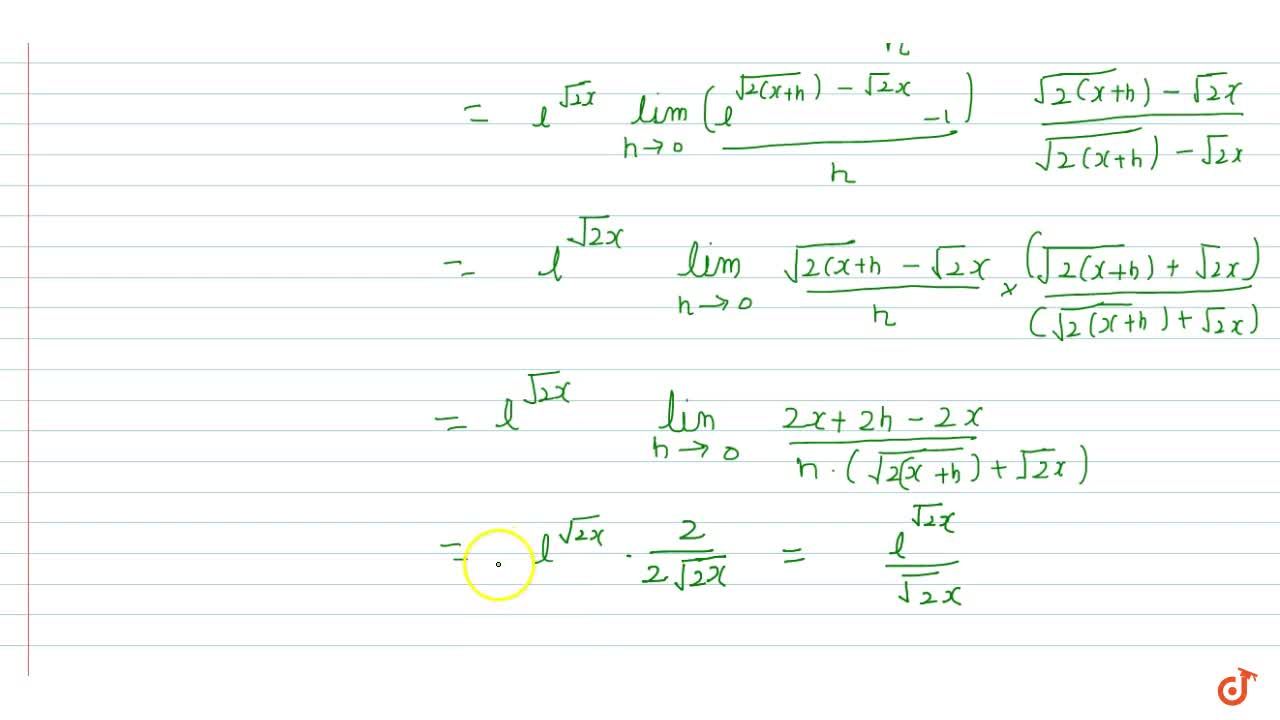 = e^{√2x} lim_{h→0} (e^{√2(x+h) - √2x} - 1) / h · (√2(x+h) - √2x) / (√2(x+h) - √2x)
= e^{√2x} lim_{h→0} (√2(x+h - √2x) / h × (√2(x+h) + √2x) / (√2(x+h) + √2x)
= e^{√2x} lim_{h→0} (2x + 2h - 2x) / (h · (√2(x+h) + √2x))
= e^{√2x} · 2 / (2√2x) = e^{√2x} / √2x